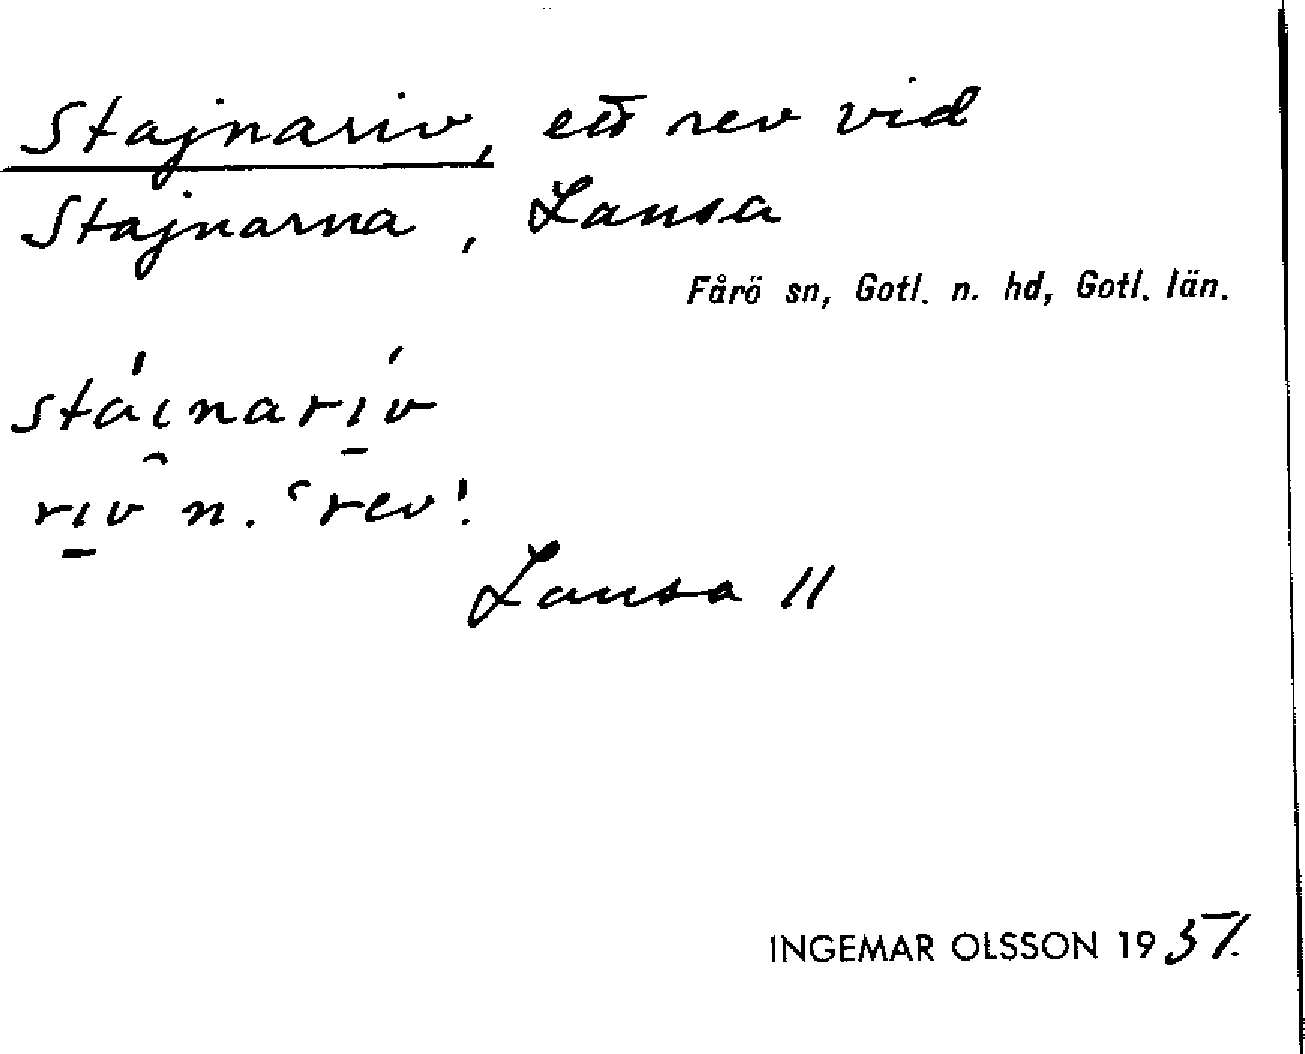 Stajnariv, ett rev vid
Stajnarna, Lansa
Fårö sn, Gotl. n. hd, Gotl. län.
stái̯narí̠v
ri̠v n. 'rev'.
Lansa 11
INGEMAR OLSSON 1951.